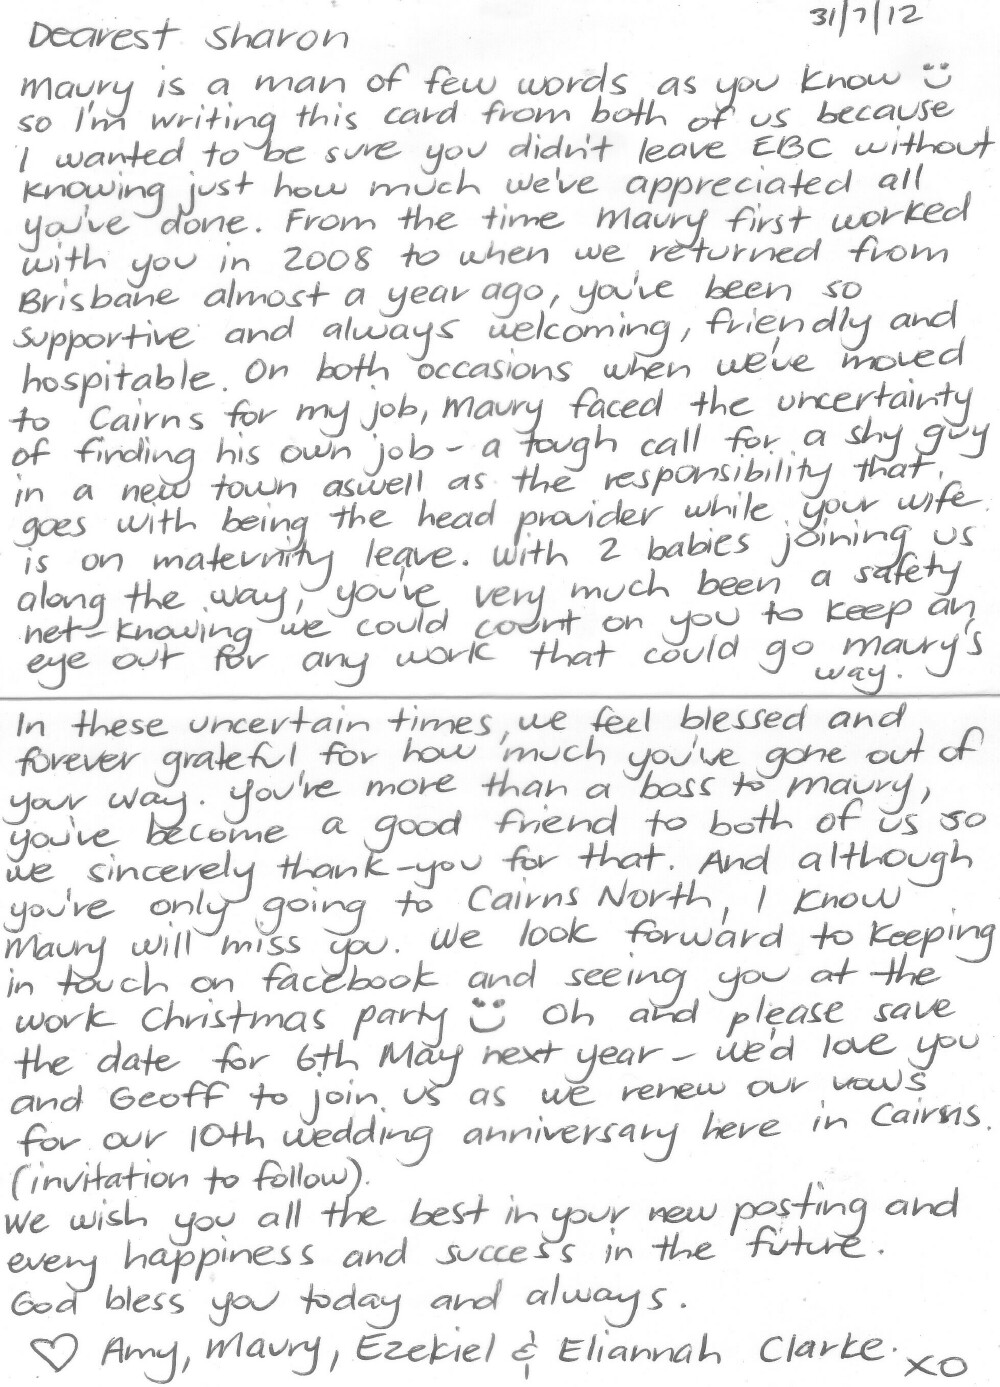 31/7/12
Dearest Sharon
Maury is a man of few words as you know
so I'm writing this card from both of us because
I wanted to be sure you didn't leave EBC without
knowing just how much we've appreciated all
you've done. From the time Maury first worked
with you in 2008 to when we returned from
Brisbane almost a year ago, you've been so
supportive and always welcoming, friendly and
hospitable. On both occasions when we've moved
to Cairns for my job, Maury faced the uncertainty
of finding his own job - a tough call for a shy guy
in a new town aswell as the responsibility that
goes with being the head provider while your wife
is on maternity leave. With 2 babies joining us
along the way, you've very much been a safety
net - knowing we could count on you to keep an
eye out for any work that could go maury's
way.
In these uncertain times, we feel blessed and
forever grateful for how much you've gone out of
your way. You're more than a boss to Maury,
you've become a good friend to both of us so
we sincerely thank-you for that. And although
you're only going to Cairns North, I know
Maury will miss you. We look forward to keeping
in touch on facebook and seeing you at the
work Christmas party Oh and please save
the date for 6th May next year - we'd love you
and Geoff to join us as we renew our vows
for our 10th wedding anniversary here in Cairns.
(invitation to follow).
We wish you all the best in your new posting and
every happiness and success in the future.
God bless you today and always.
♡ Amy, Maury, Ezekiel & Eliannah Clarke.
XO